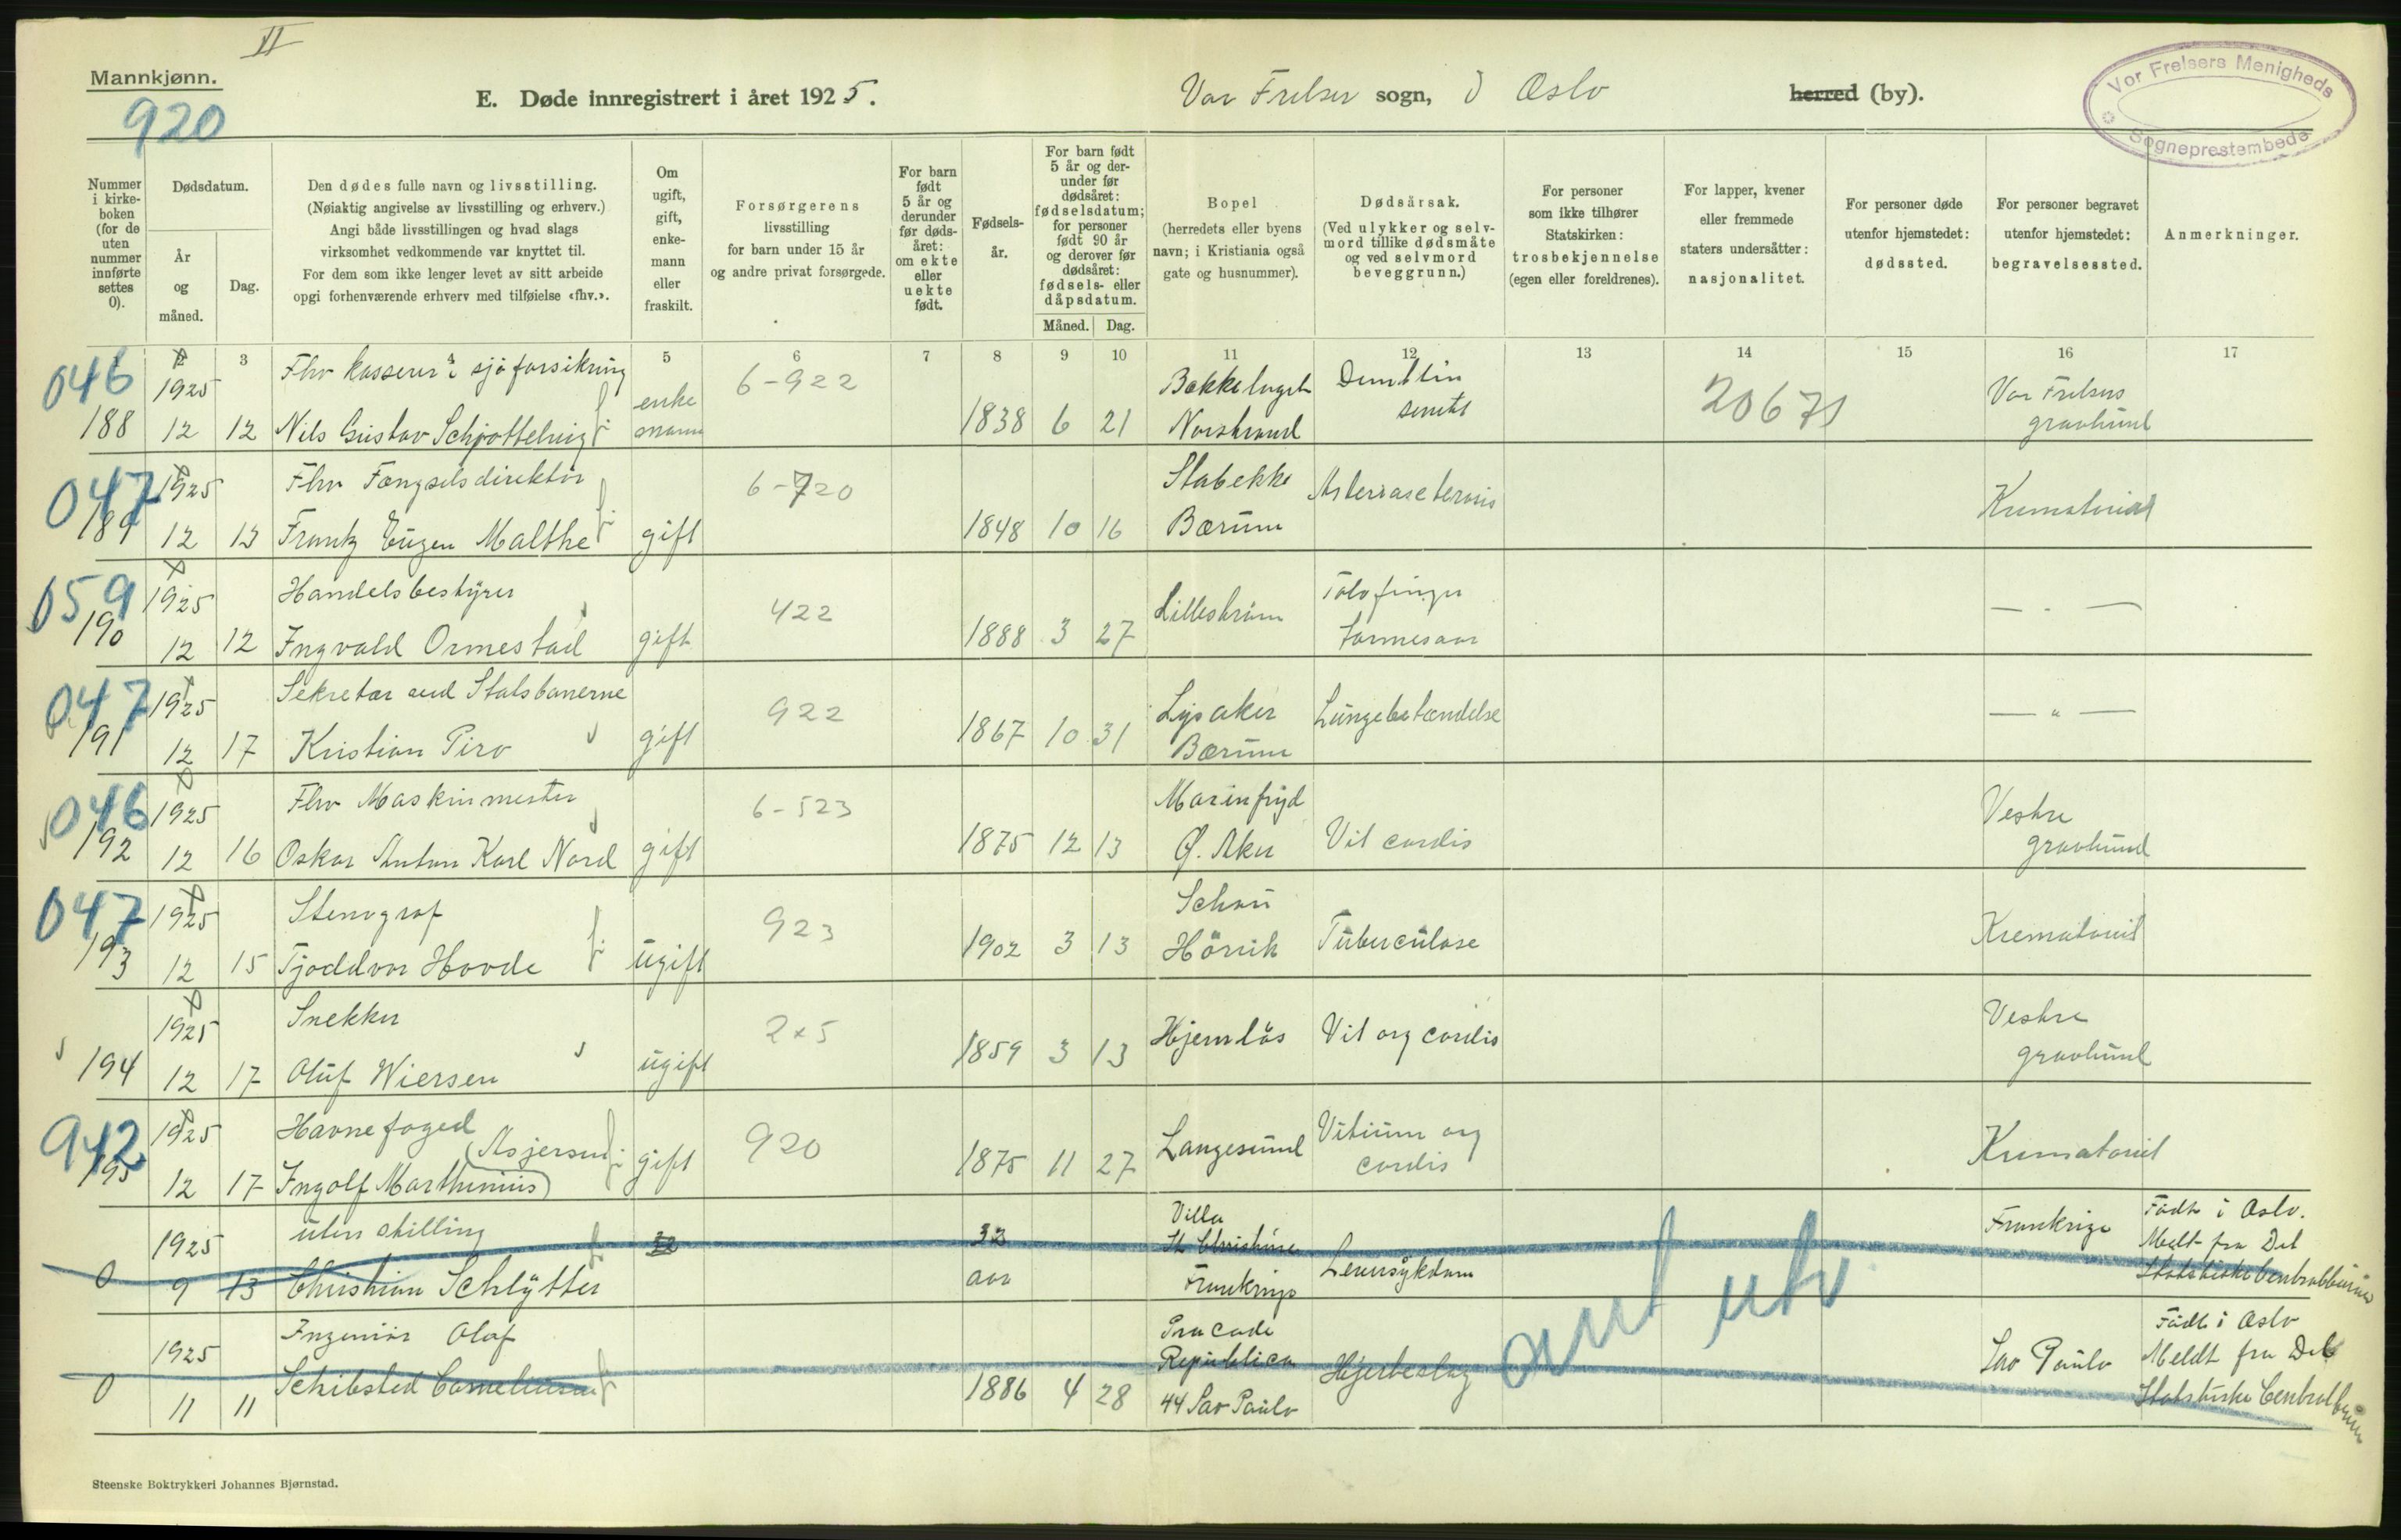 II
Mannkjønn.
920
E. Døde innregistrert i året 1925.
Vor Frelser sogn, i Oslo herred (by).
Vor Frelsers Menigheds
Sogneprestembede
Nummer i kirke-boken (for de uten nummer innførte settes 0).
Dødsdatum.
År og måned.
Dag.
Den dødes fulle navn og livsstilling.
(Nøiaktig angivelse av livsstilling og erhverv.)
Angi både livsstillingen og hvad slags
virksomhet vedkommende var knyttet til.
For dem som ikke lenger levet av sitt arbeide
opgi forhenværende erhverv med tilføielse «fhv.».
Om ugift, gift, enke-mann eller fraskilt.
Forsørgerens
livsstilling
for barn under 15 år
og andre privat forsørgede.
For barn født 5 år og derunder før døds-året: om ekte eller uekte født.
Fødsels-år.
For barn født 5 år og der-under før dødsåret: fødselsdatum; for personer født 90 år og derover før dødsåret: fødsels- eller dåpsdatum.
Måned. Dag.
Bopel
(herredets eller byens
navn; i Kristiania også
gate og husnummer).
Dødsårsak.
(Ved ulykker og selv-
mord tillike dødsmåte
og ved selvmord
beveggrunn.)
For personer
som ikke tilhører
Statskirken:
trosbekjennelse
(egen eller foreldrenes).
For lapper, kvener
eller fremmede
staters undersåtter:
nasjonalitet.
For personer døde
utenfor hjemstedet:
dødssted.
For personer begravet
utenfor hjemstedet:
begravelsessted.
Anmerkninger.
2 3 4 5 6 7 8 9 10 11 12 13 14 15 16 17
046 1925 Fhv kasserer i sjøforsikring 6-922 Bækkelaget Demblin 20671 Vor Frelsers
188 12 12 Nils Gustav enke mann 1838 6 21 Norstrand senile gravlund
047 1925 Fhv Fængselsdirektør 6-720 Stabekke
189 12 13 Frantz Eugen Malthe gift 1848 10 16 Bærum
059 1925 Handelsbestyrer 422 Lillestrøm Tolvfinger
190 12 12 Ingvald Ormestad gift 1888 3 27 tarmesaar — " —
047 1925 Sekretær ved Statsbanerne 922 Lysaker Lungebetændelse — " —
191 12 17 Kristian Piro gift 1867 10 31 Bærum
046 1925 Fhv Maskinmester 6-523 Marinfryd Vestre
192 12 16 Oskar Anton Karl Nord gift 1875 12 13 Ø. Aker Vit cordis gravlund
047 1925 Stenograf 923 Krematoriet
193 12 15 Tjoddvor Hovde ugift 1902 3 13 Tuberculose
1925 Snekker 2x5 Hjemløs Vit org cordis Vestre
194 12 17 Oluf Wiersen ugift 1859 3 13 gravlund
942 1925 Havnefoged 920 Langesund Vitium org Krematoriet
195 12 17 Ingolf Marthinius (Asjersen gift 1875 11 27 cordis
1925 uten stilling 32 32 Villa St Christine Frankrige Født i Oslo.
0 9 13 Christian Schlytter aar Frankrige Leversykdom Meldt fra Det
Statistiske Centralbureau
ant utv
1925 Ingeniør Olaf Republica Hjerteslag Sao Paulo Født i Oslo
0 11 11 Schibsted Corneliussen 1886 4 28 44 Sao Paulo Meldt fra Det
Statistiske Centralbureau
Steenske Boktrykkeri Johannes Bjørnstad.